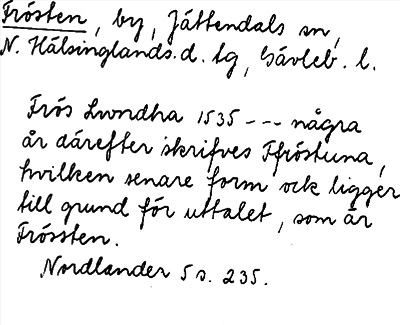 Frösten, by, Jättendals sn,
N. Hälsinglands d. tg, Gävleb. l.
Frös Lwndha 1535 --- några
år därefter skrifves Ffröstuna,
hvilken senare form ock ligger
till grund för uttalet, som är
Frössten.
Nordlander 5 s. 235.